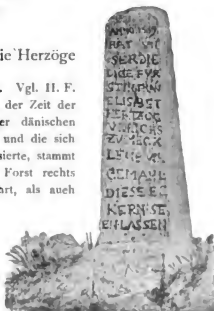 ie Herzöge
Vgl. H. F.
der Zeit der
er dänischen
und die sich
sierte, stammt
Forst rechts
art, als auch
ANNO
HAT VN
SER DIE
DIGE FVR
STIN
ELISABET
HERTZOG
VLRICHS
ZV MECK
GEMAHL
DIESE EC
KERN
LASSEN